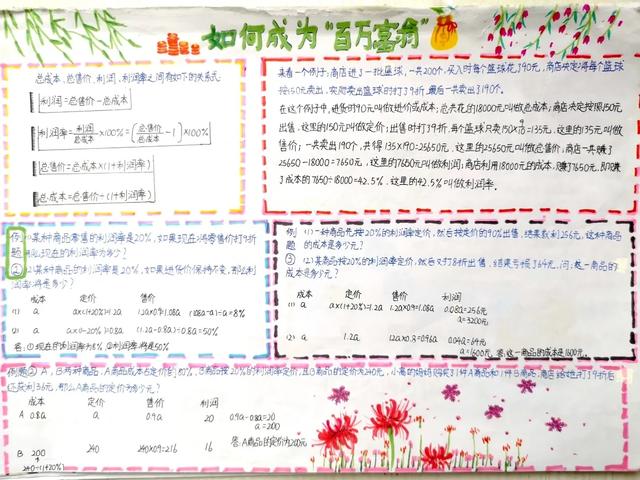 如何成为“百万富翁”
总成本、总售价、利润、利润率之间有如下的关系式:
利润=总售价-总成本
利润率=利润/总成本×100%=(总售价/总成本-1)×100%
总售价=总成本×(1+利润率)
总成本=总售价÷(1+利润率)
来看一个例子:商店进了一批篮球,一共200个,买入时每个篮球花了90元,商店决定将每个篮球
按150元卖出,实际卖出篮球时打了9折,最后一共卖出了190个。
在这个例子中,进货时90元叫做进价或成本;总共花的18000元叫做总成本;商店决定按照150元
出售,这里的150元叫做定价;出售时打了9折,每个篮球只卖150×0.9=135元,这里的135元叫做
售价;一共卖出190个,共得135×190=25650元,这里的25650元叫做总售价;商店一共赚了
25650-18000=7650元,这里的7650元叫做利润;商店利用18000元的成本,赚了7650元,即赚
了成本的7650÷18000=42.5%,这里的42.5%叫做利润率。
例题②
(1)某种商品零售的利润率是20%,如果现在将零售价打9折
现在的利润率为多少?
(2)某种商品的利润率是20%,如果进货价降
利润率将是多少?
成本 定价 售价
(1) a a×(1+20%)=1.2a 1.2a×0.9=1.08a (1.08a-a)÷a=8%
(2) a a×(1-20%)=0.8a (1.2a-0.8a)÷0.8a=50%
答:①现在的利润率为8% ②利润率将是50%
例题③
(1)一种商品先按20%的利润率定价,然后按定价的90%出售,结果获利256元,这种商品
的成本是多少元?
(2)某商品按20%的利润率定价,然后又打8折出售,结果亏损了64元,问:这一商品的
成本是多少元?
成本 定价 售价 利润
(1) a a×(1+20%)=1.2a 1.2a×0.9=1.08a 0.08a=256元
a=3200元
(2) a 1.2a 1.2a×0.8=0.96a 0.04a=64元
a=1600元 答:这一商品的成本是1600元。
A,B两种商品,A商品成本占定价的80%,B商品按20%的利润率定价,且B商品的定价为240元,小高的妈妈购买了1件A商品和1件B商品,商店给她打了9折后
还获利36元,那么A商品的定价为多少元?
成本 定价 售价 利润
A 0.8a a 0.9a 20 0.9a-0.8a=20
a=200
答:A商品的定价为200元
B 200 240 240×0.9=216 16
240÷(1+20%)